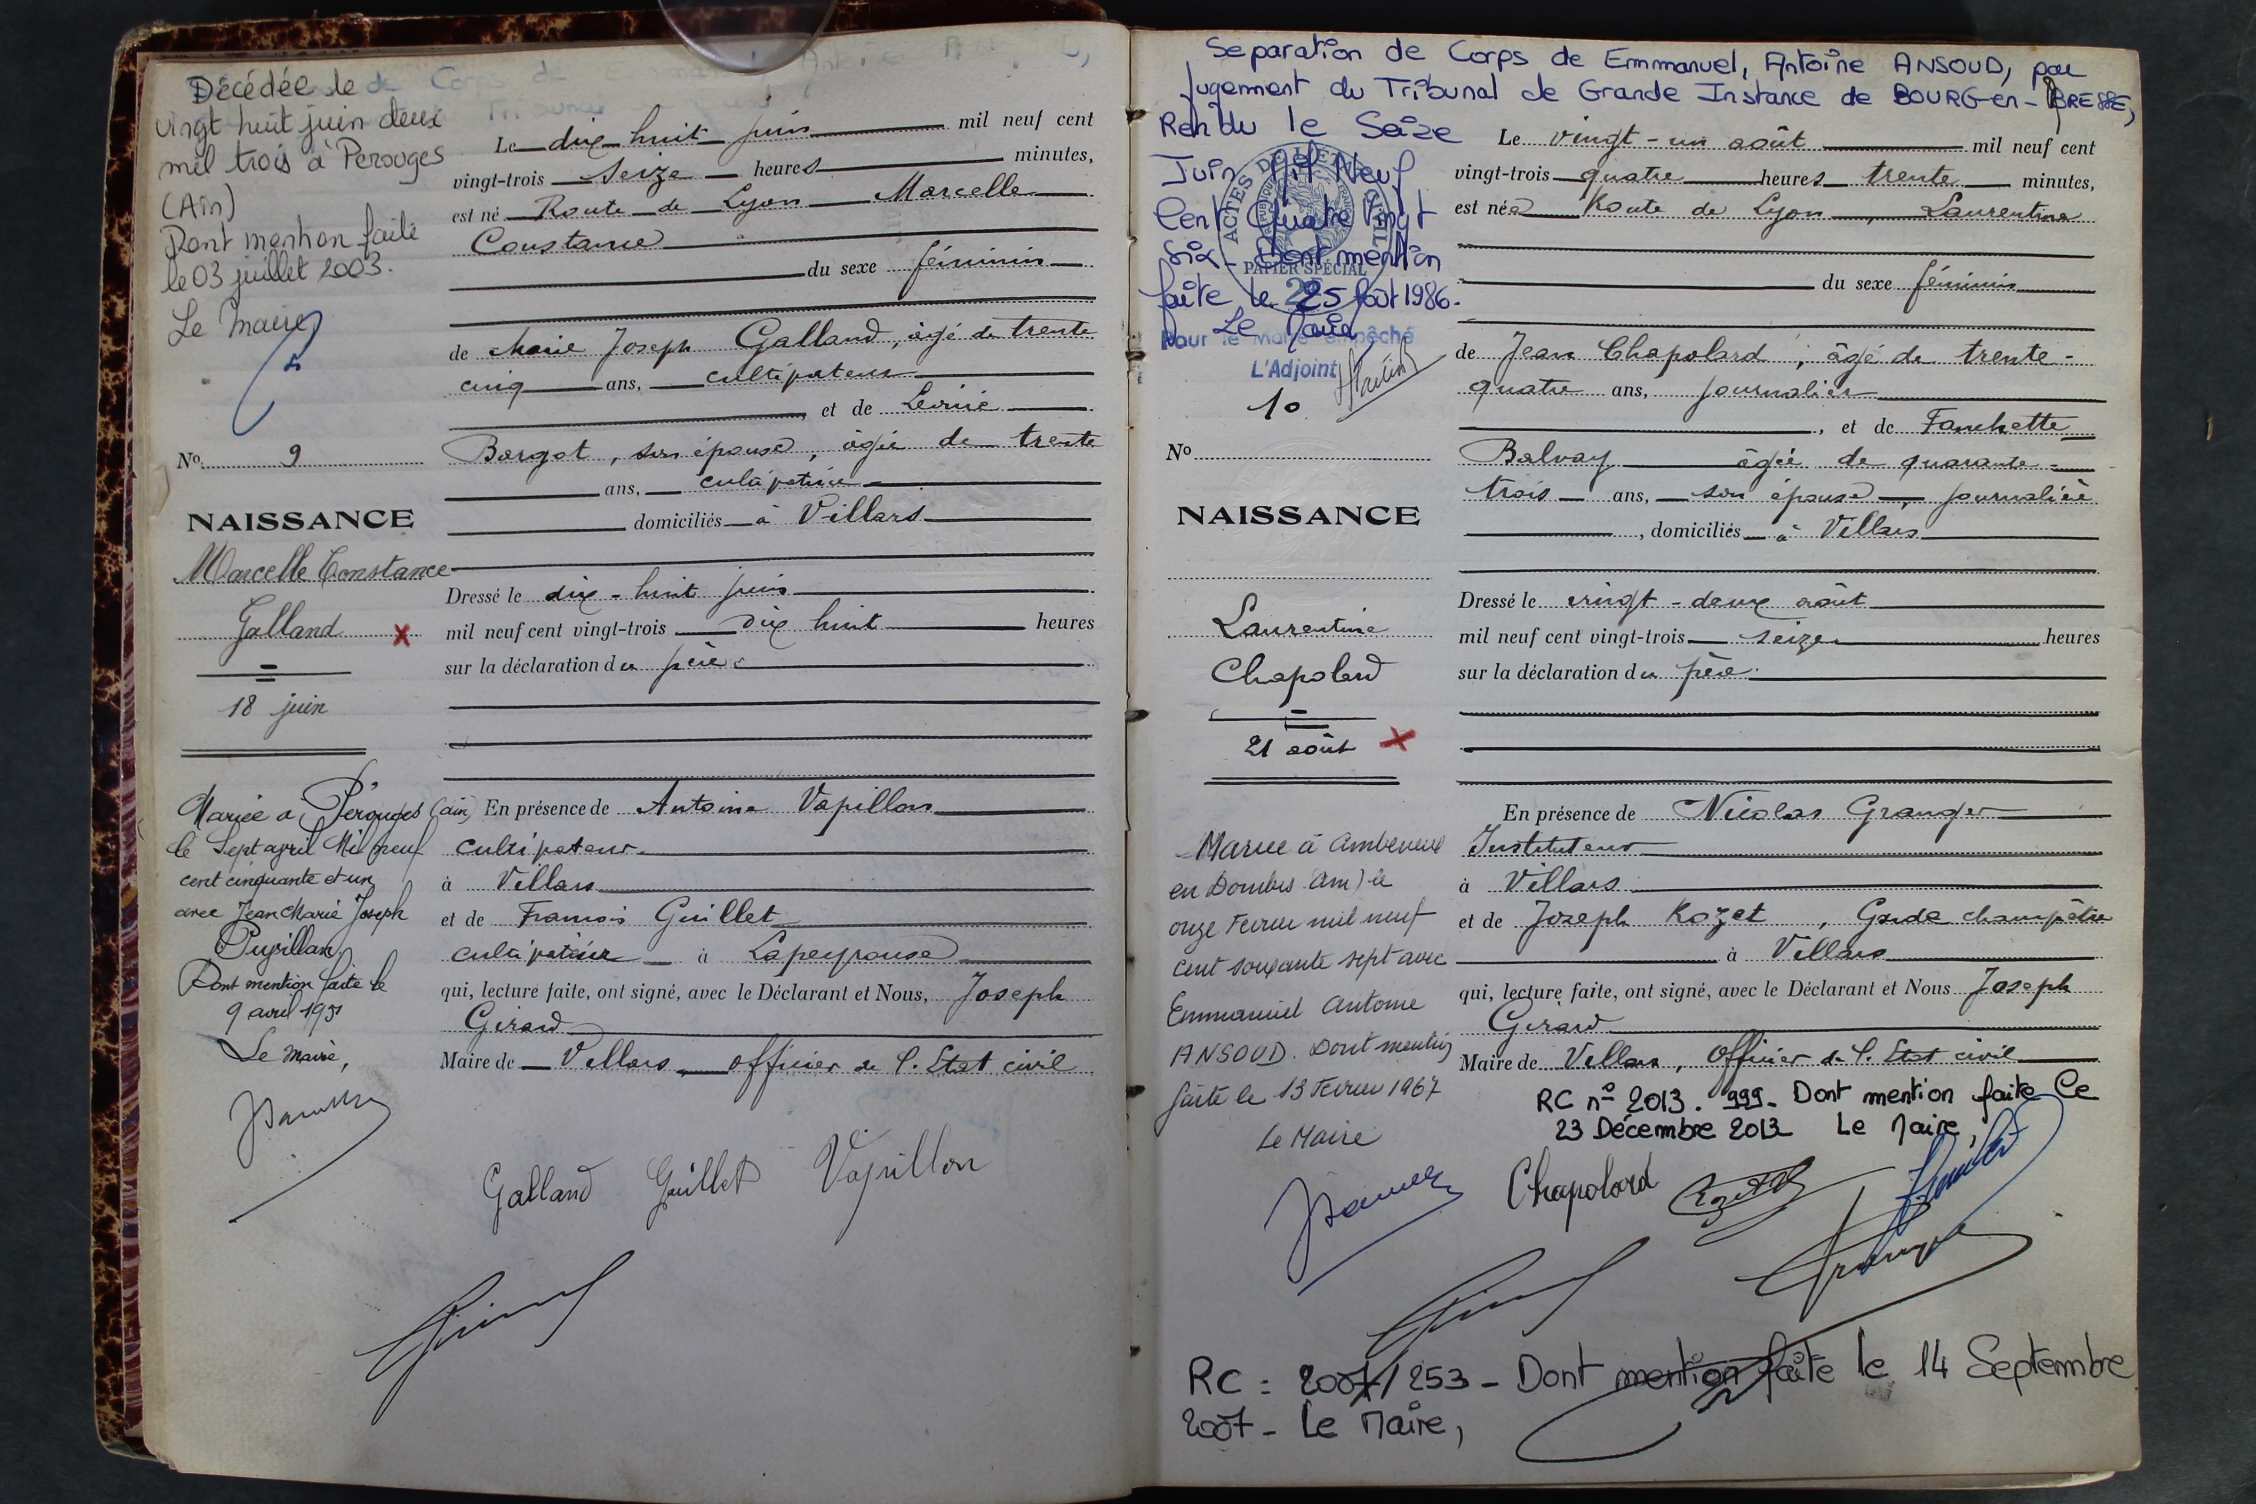 Décédée le
vingt huit juin deux
mil trois à Perouges
(Ain)
Dont mention faite
le 03 juillet 2003.
Le Maire
No. 9
NAISSANCE
Marcelle Constance
Galland
18 juin
Mariée à Pérouges (ain)
le Sept avril Mil neuf
cent cinquante et un
avec Jean Marie Joseph
Dont mention faite le
9 avril 1951
Le Maire,
Le dix huit juin mil neuf cent
vingt-trois seize heures minutes,
est né Route de Lyon Marcelle
Constance
du sexe féminin
de Marie Joseph Galland, âgé de trente
cinq ans, cultivateur
et de
Borgot, son épouse, âgée de trente
ans, cultivatrice
domiciliés à Villars
Dressé le dix-huit juin
mil neuf cent vingt-trois dix huit heures
sur la déclaration du père
En présence de Antoine Vapillon
cultivateur
à Villars
et de François Guillet
cultivateur à Lapeyrouse
qui, lecture faite, ont signé, avec le Déclarant et Nous, Joseph
Girard
Maire de Villars, officier de l'Etat civil
Galland Guillet Vapillon
Separation de Corps de Emmanuel, Antoine ANSOUD, par
Jugement du Tribunal de Grande Instance de BOURG-en-BRESSE,
Rendu le Seize
Juin Mil Neuf
Cent Quatre Vingt
Six - Dont mention
faite le 25 Août 1986.
Le Maire
Pour le Maire empêché
L'Adjoint
ACTES DE L'ETAT CIVIL
PAPIER SPÉCIAL
10
No
NAISSANCE
Laurentine
Chapolard
21 août
Mariée à Ambérieux
en Dombes (Ain) le
onze Fevrier mil neuf
cent soixante sept avec
Emmanuel Antoine
ANSOUD. Dont mention
faite le 13 Fevrier 1967
Le Maire
Le vingt-un août mil neuf cent
vingt-trois quatre heures trente minutes,
est née Route de Lyon, Laurentine
du sexe féminin
de Jean Chapolard, âgé de trente-
quatre ans, journalier
, et de Fanchette
Balvay âgée de quarante-
trois ans, son épouse journalière
, domiciliés à Villars
Dressé le vingt-deux août
mil neuf cent vingt-trois seize heures
sur la déclaration du père
En présence de Nicolas Granger
Instituteur
à Villars
et de Joseph Rozet, Garde champêtre
à Villars
qui, lecture faite, ont signé, avec le Déclarant et Nous Joseph
Girard
Maire de Villars, Officier de l'Etat civil
RC n° 2013. 999- Dont mention faite le
23 Décembre 2013 Le Maire,
Chapolard
RC: 2007/253 - Dont mention faite le 14 Septembre
2007 - Le Maire,